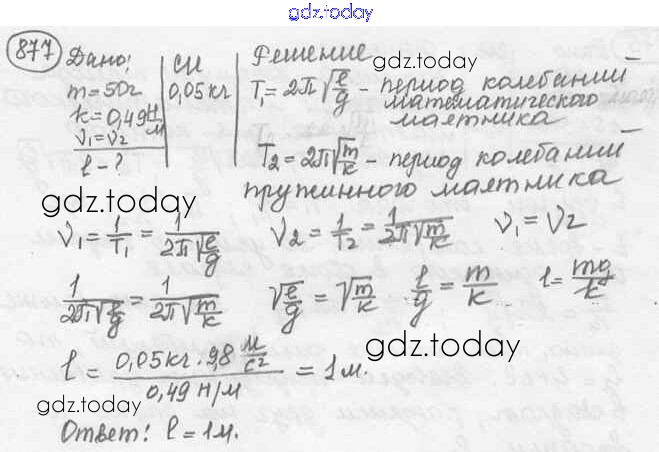 gdz.today
877 Дано: СИ Решение
m=50г 0,05кг T₁=2π√(l/g) - период колебаний математического маятника
k=0,49 Н/м
ν₁=ν₂
l-? T₂=2π√(m/k) - период колебаний пружинного маятника
gdz.today
ν₁=1/T₁=1/(2π√(l/g)) ν₂=1/T₂=1/(2π√(m/k)) ν₁=ν₂
1/(2π√(l/g))=1/(2π√(m/k)) √(l/g)=√(m/k) l/g=m/k l=mg/k
l=(0,05кг·9,8 м/с²)/(0,49 Н/м)=1м.
gdz.today
gdz.today
Ответ: l=1м.